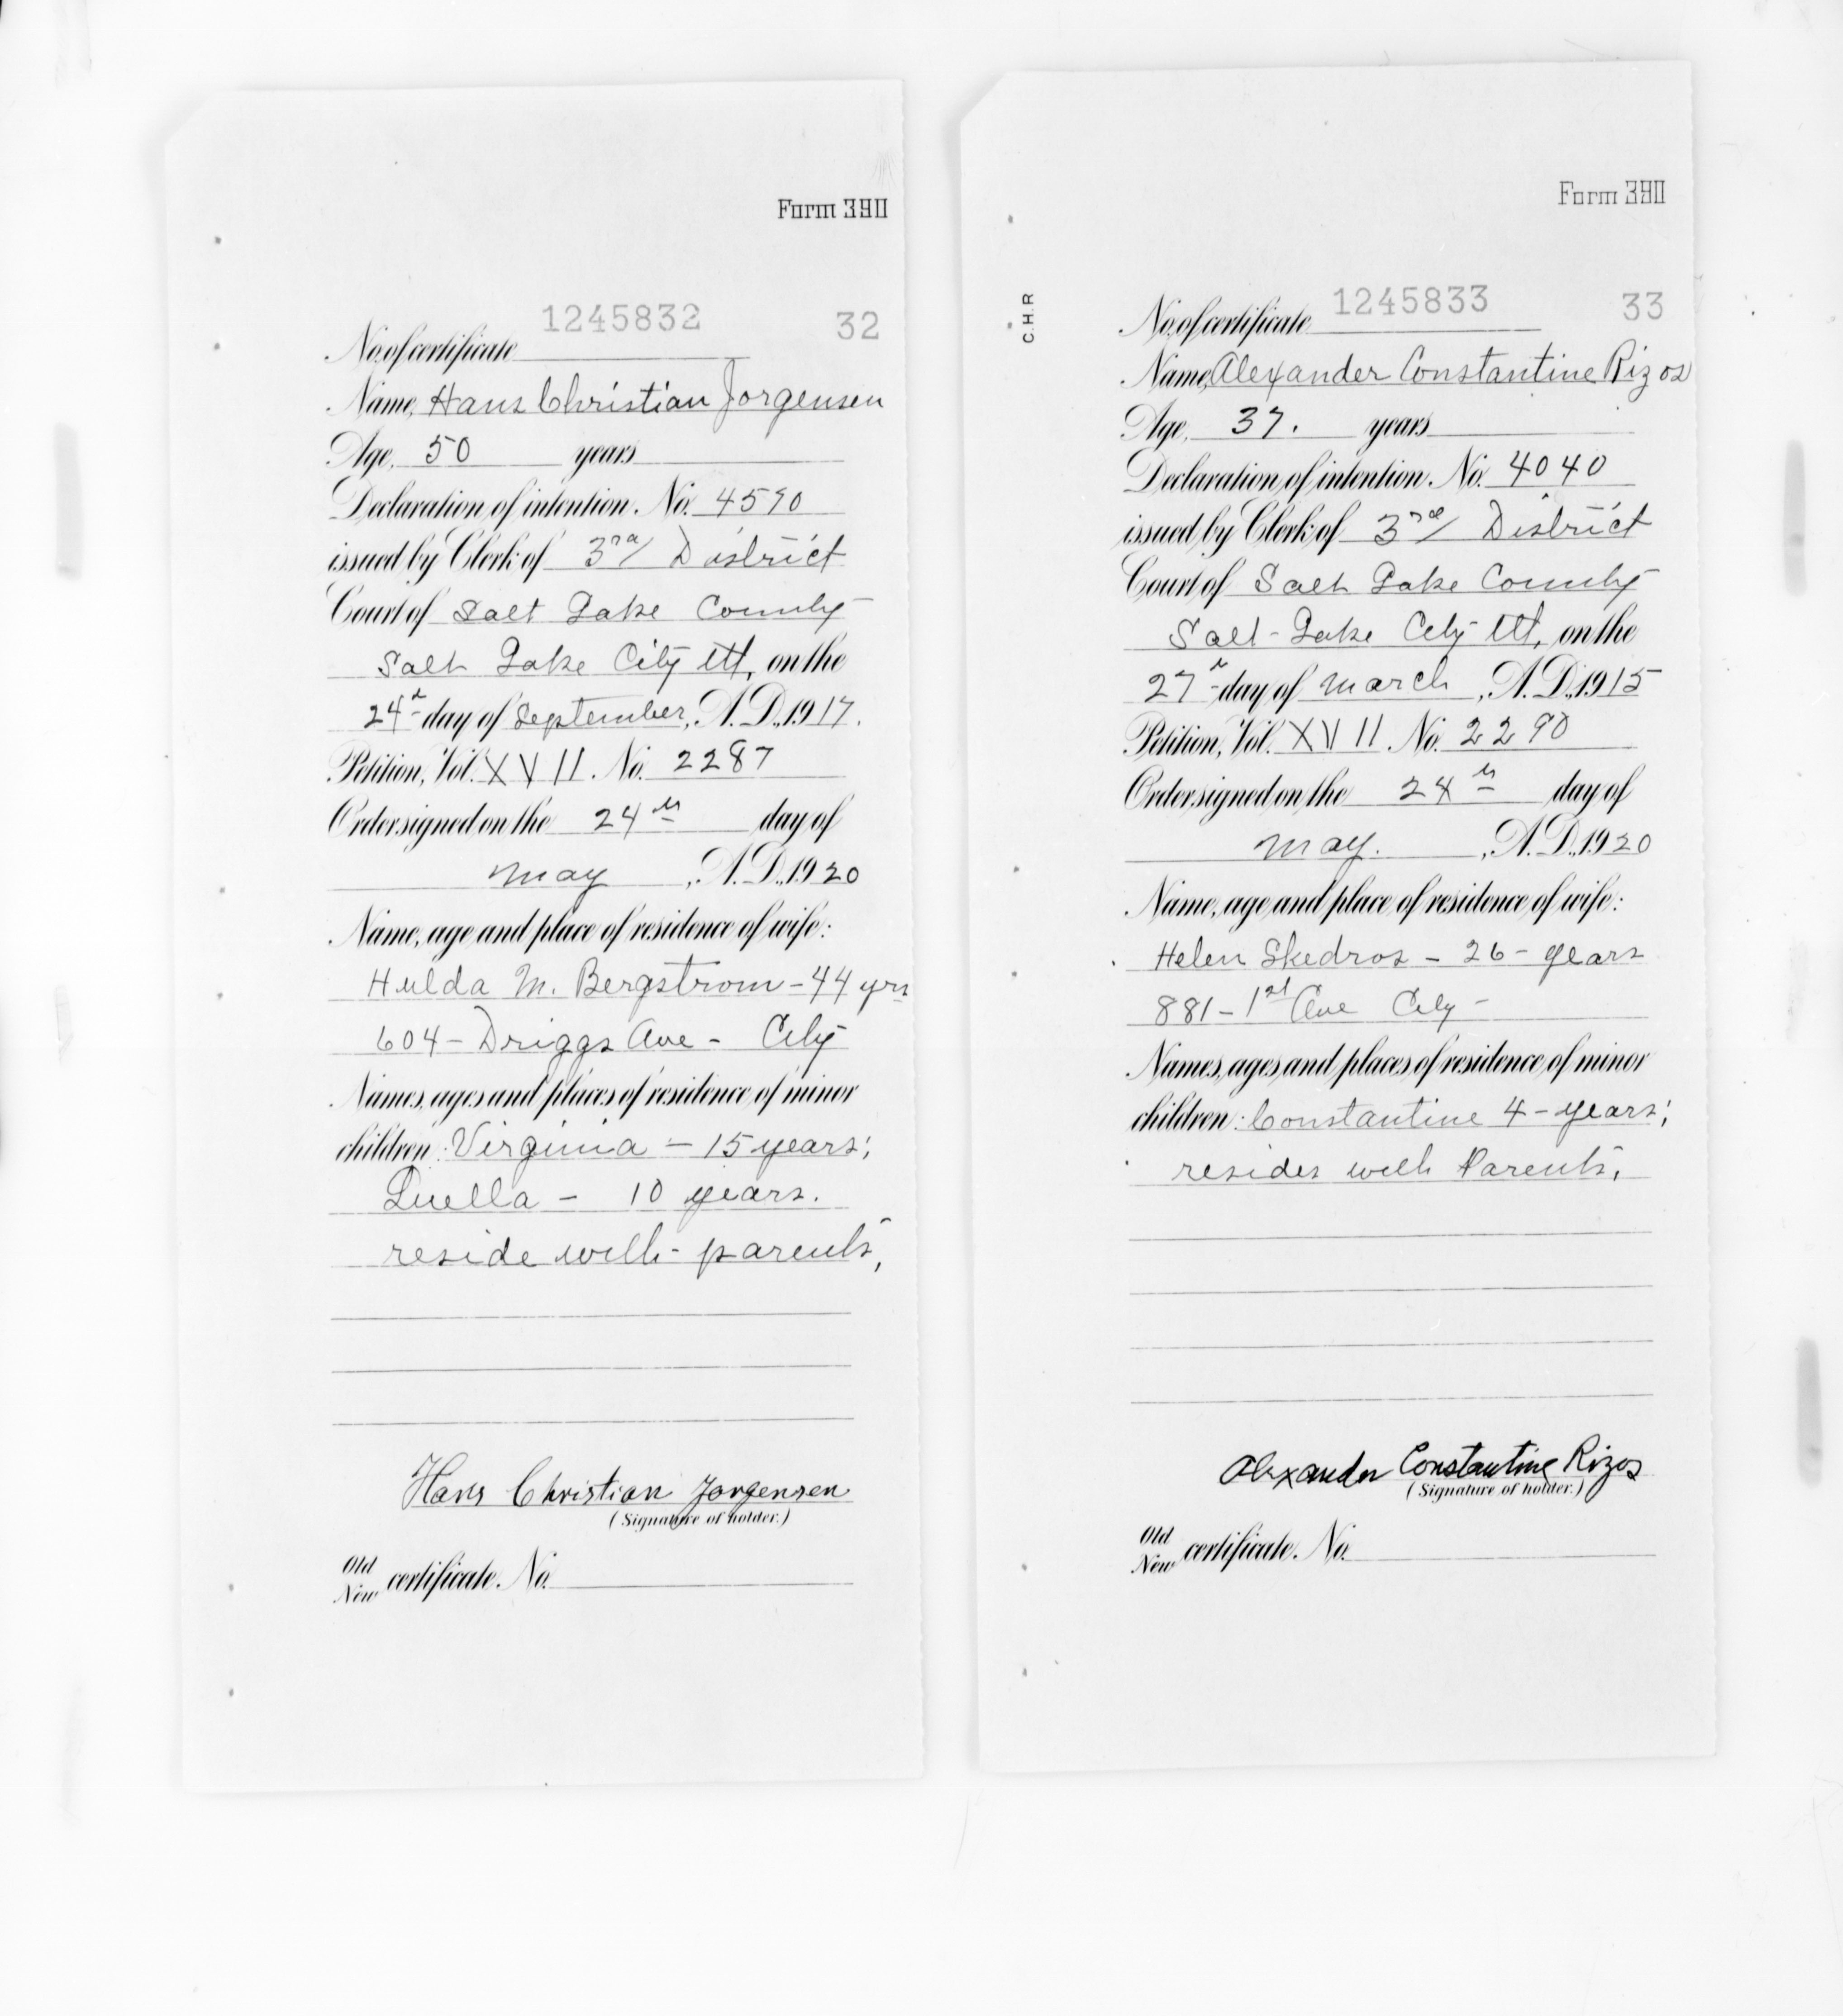 Form 390
1245832 32
No. of certificate
Name, Hans Christian Jorgensen
Age, 50 years
Declaration of intention. No. 4590
issued by Clerk of 3rd District
Court of Salt Lake County
Salt Lake City Ut, on the
24th day of September, A.D., 1917.
Petition, Vol. XVII. No. 2287
Order signed on the 24th day of
May, A.D., 1920
Name, age and place of residence of wife:
Hulda M. Bergstrom - 44 yrs
604 - Driggs Ave - City
Names, ages and places of residence of minor
children: Virginia - 15 years;
Luella - 10 years.
reside with parents,
Hans Christian Jorgensen
(Signature of holder.)
Old
New certificate. No.
Form 390
C.H.R
1245833 33
No. of certificate
Name, Alexander Constantine Rizos
Age, 37. years
Declaration of intention. No. 4040
issued by Clerk of 3rd District
Court of Salt Lake County
Salt Lake City Ut, on the
27th day of March, A.D., 1915
Petition, Vol. XVII. No. 2290
Order signed on the 24th day of
May., A.D., 1920
Name, age and place of residence of wife:
Helen Skedros - 26 - years
881 - 1st Ave City -
Names, ages and places of residence of minor
children: Constantine 4 - years;
resides with Parents,
Alexander Constantine Rizos
(Signature of holder.)
Old
New certificate. No.